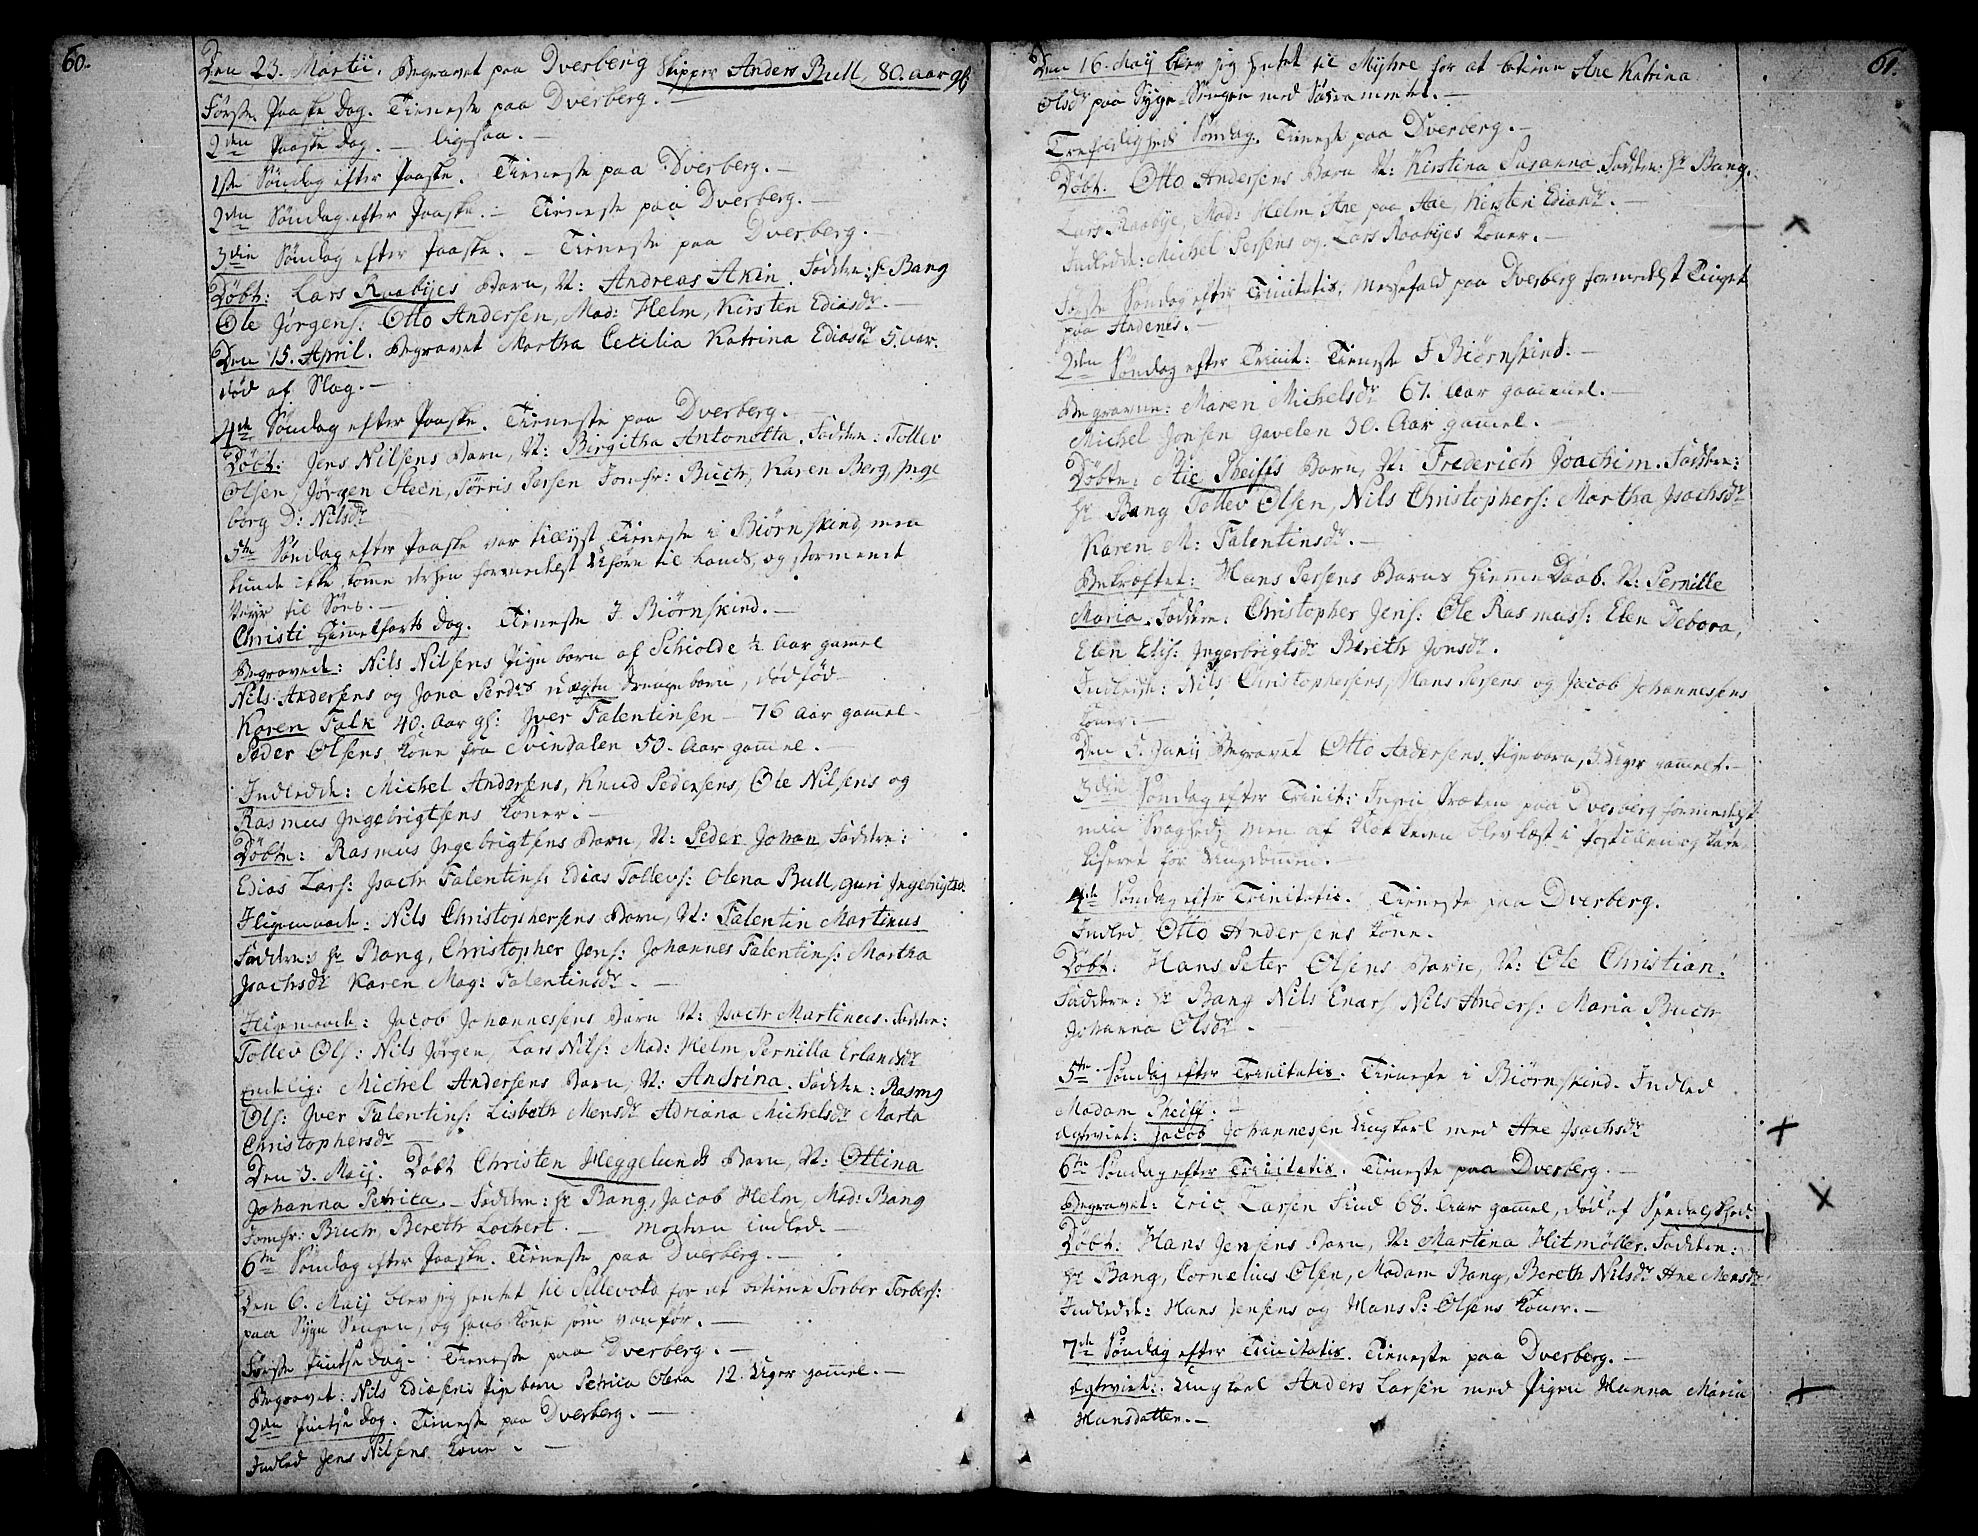 60.
Den 23. Martii. Begravet paa Dverberg Skipper Anders Bull, 80. aar gl:
Første Paaske Dag. Tieneste paa Dverberg. –
2den Paaske Dag. – ligesaa. –
1ste Søndag efter Paaske. Tieneste paa Dverberg. –
2den Søndag efter Paaske. – Tieneste paa Dverberg. –
3die Søndag efter Paaske. – Tieneste paa Dverberg. –
Døbt: Lars Raabyes Barn, N: Andreas Akin. Faddere: Hr Bang
Ole Jørgens: Otto Andersen, Mad: Helm, Kirsten Ediasdr. –
Den 15. April. Begravet Martha Cecilia Katrina Ediasdr 5. aar.
død af Slag. –
4de Søndag efter Paaske. Tieneste paa Dverberg. –
Døbt: Jens Nilsens Barn, N: Birgitha Antonetta. Faddere: Tollev
Olsen, Jørgen Steen, Tørris Persen Jomfr: Buch, Karen Berg, Inge
borg D: Nilsdr
5te Søndag efter Paaske var tillyst Tieneste i Biørnskind, men
kunde ikke kome derhen formedelst Uføre til Lands, og stormende
Veyr til Søes. –
Christi Himmelfarts Dag. Tieneste I Biørnskind. –
Begravede: Nils Nilsens Pigebarn af Schiolde ½ Aar gamel
Nils Andersens og Jona Persdrs uægte Drengebarn, dødfød –
Karen Falk 40. Aar gl: Iver Falentinsen – 76 Aar gamel –
Peder Olsens Kone fra Svindalen 50. Aar gammel. –
Indledde: Michel Andersens, Knud Pedersens, Ole Nilsens og
Rasmus Ingebrigtsens Koner. –
Døbte: Rasmus Ingebrigtsens Barn, N: Peder Johan Faddere:
Edias Lars: Isach Falentins: Edias Tollevs: Olena Bull, Guri Ingebrigtsd:
Iligemaade: Nils Christophersens Barn, N: Falentin Martinus
Faddere: Hr Bang, Christopher Jens: Johannes Falentins: Martha
Isachsdr Karen Mag: Falentinsdr. –
Iligemaade: Jacob Johannessens Barn N: Isach Martinus. Faddere:
Tollev Ols: Nils Jørgen, Lars Nils: Mad: Helm, Pernilla Erlandsdr
Endelig: Michel Andersens Barn, N: Andrina. Faddere: Rasmus
Ols: Iver Falentins: Lisbeth Mensdr Adriana Michelsdr Marta
Christophersdr –
Den 3. Maij. Døbt Christen Heggelunds Barn, N: Ottina
Johanna Petrica. – Faddere: Hr Bang, Jacob Helm, Mad: Bang
Jomfr: Buch, Bereth Lochert. – Moderen indled. –
6te Søndag efter Paaske. Tieneste paa Dverberg. –
Den 6. Maij blev jeg hentet til Sellevold for at betiene Torber Torbers:
paa Syge Sengen, og hans Kone som vanfør. –
Første Pintse Dag. Tieneste paa Dverberg. –
Begravet: Nils Ediasens Pigebarn Petricia Olena 12. Uger gammel. –
2den Pintse Dag. Tieneste paa Dverberg. –
Indled Jens Nilsens Kone. –
61.
Den 16. Maij blev jeg hentet til Myhre for at betiene Ane Katrina
Olsdr paa Syge Sengen med Sacramentet. –
Trefoldigheds Søndag. Tieneste paa Dverberg. –
Døbt: Otto Andersens Barn N: Kirstina Susanna. Faddere: Hr Bang,
Lars Raabye, Mad: Helm Ane paa Aae, Kirsten Ediasdr. –
Indledde: Michel Persens og Lars Raabyes Koner. –
Første Søndag efter Trinitatis, Messefald paa Dverberg formedelst Tinget
paa Andenes. –
2den Søndag efter Trinit: Tieneste I Biørnskind. –
Begravne: Maren Michelsdr 61. Aar gammel. –
Michel Jonsen Gavelen 30. Aar gamel. –
Døbte: Pheiffs Barn, N: Frederich Joachim. Faddere:
Hr Bang Tollev Olsen, Nils Christophers: Martha Isachsdr
Karen M: Falentinsdr. –
Bekræftet: Hans Persens Barns Hiemme Daab. N: Pernille
Maria. Faddere: Christopher Jens: Ole Rasmuss: Elen Debora,
Elen Elis: Ingerbrigtsdr Bereth Jonsdr.
Indledde: Nils Christophersens, Hans Persens og Jacob Johannesens
Koner. –
Den 5. Junij Begravet Otto Andersens Pigebarn, 3. Uger gamelt. –
3die Søndag efter Trinit: Ingen Præken paa Dverberg formedelst
min Svaghed, men af Klokkeren blev læst i Postillen og Cate
chiseret for Ungdommen. –
4de Søndag efter Trinitatis. Tieneste paa Dverberg.
Indled Otto Andersens Kone.
Døbt: Hans Peter Olsens Barn, N: Ole Christian.
Faddere: Hr Bang Nils Enars: Nils Anders: Maria Buch
Johanna Olsdr. –
5te Søndag efter Trinitatis. Tieneste i Biørnskind. Indled
Madam Pheiff. –
Egteviet: Jacob Johannesen Ungkarl med Ane Isachsdr
6te Søndag efter Trinitatis. Tieneste paa Dverberg. –
Begravet: Eric Larsen Find 68. Aar gammel, død af Spedalskhed.
Døbt: Hans Jensens Barn, N: Martina Hitmøller. Faddere:
Hr Bang, Cornelius Olsen, Madam Bang, Bereth Nilsdr Ane Mensdr
Indledde: Hans Jensens og Hans P: Olsens Koner. –
7de Søndag efter Trinitatis. Tieneste paa Dverberg. –
Egteviet: Ungkarl Anders Larsen med Pigen Hanna Maria
Hansdatter. –